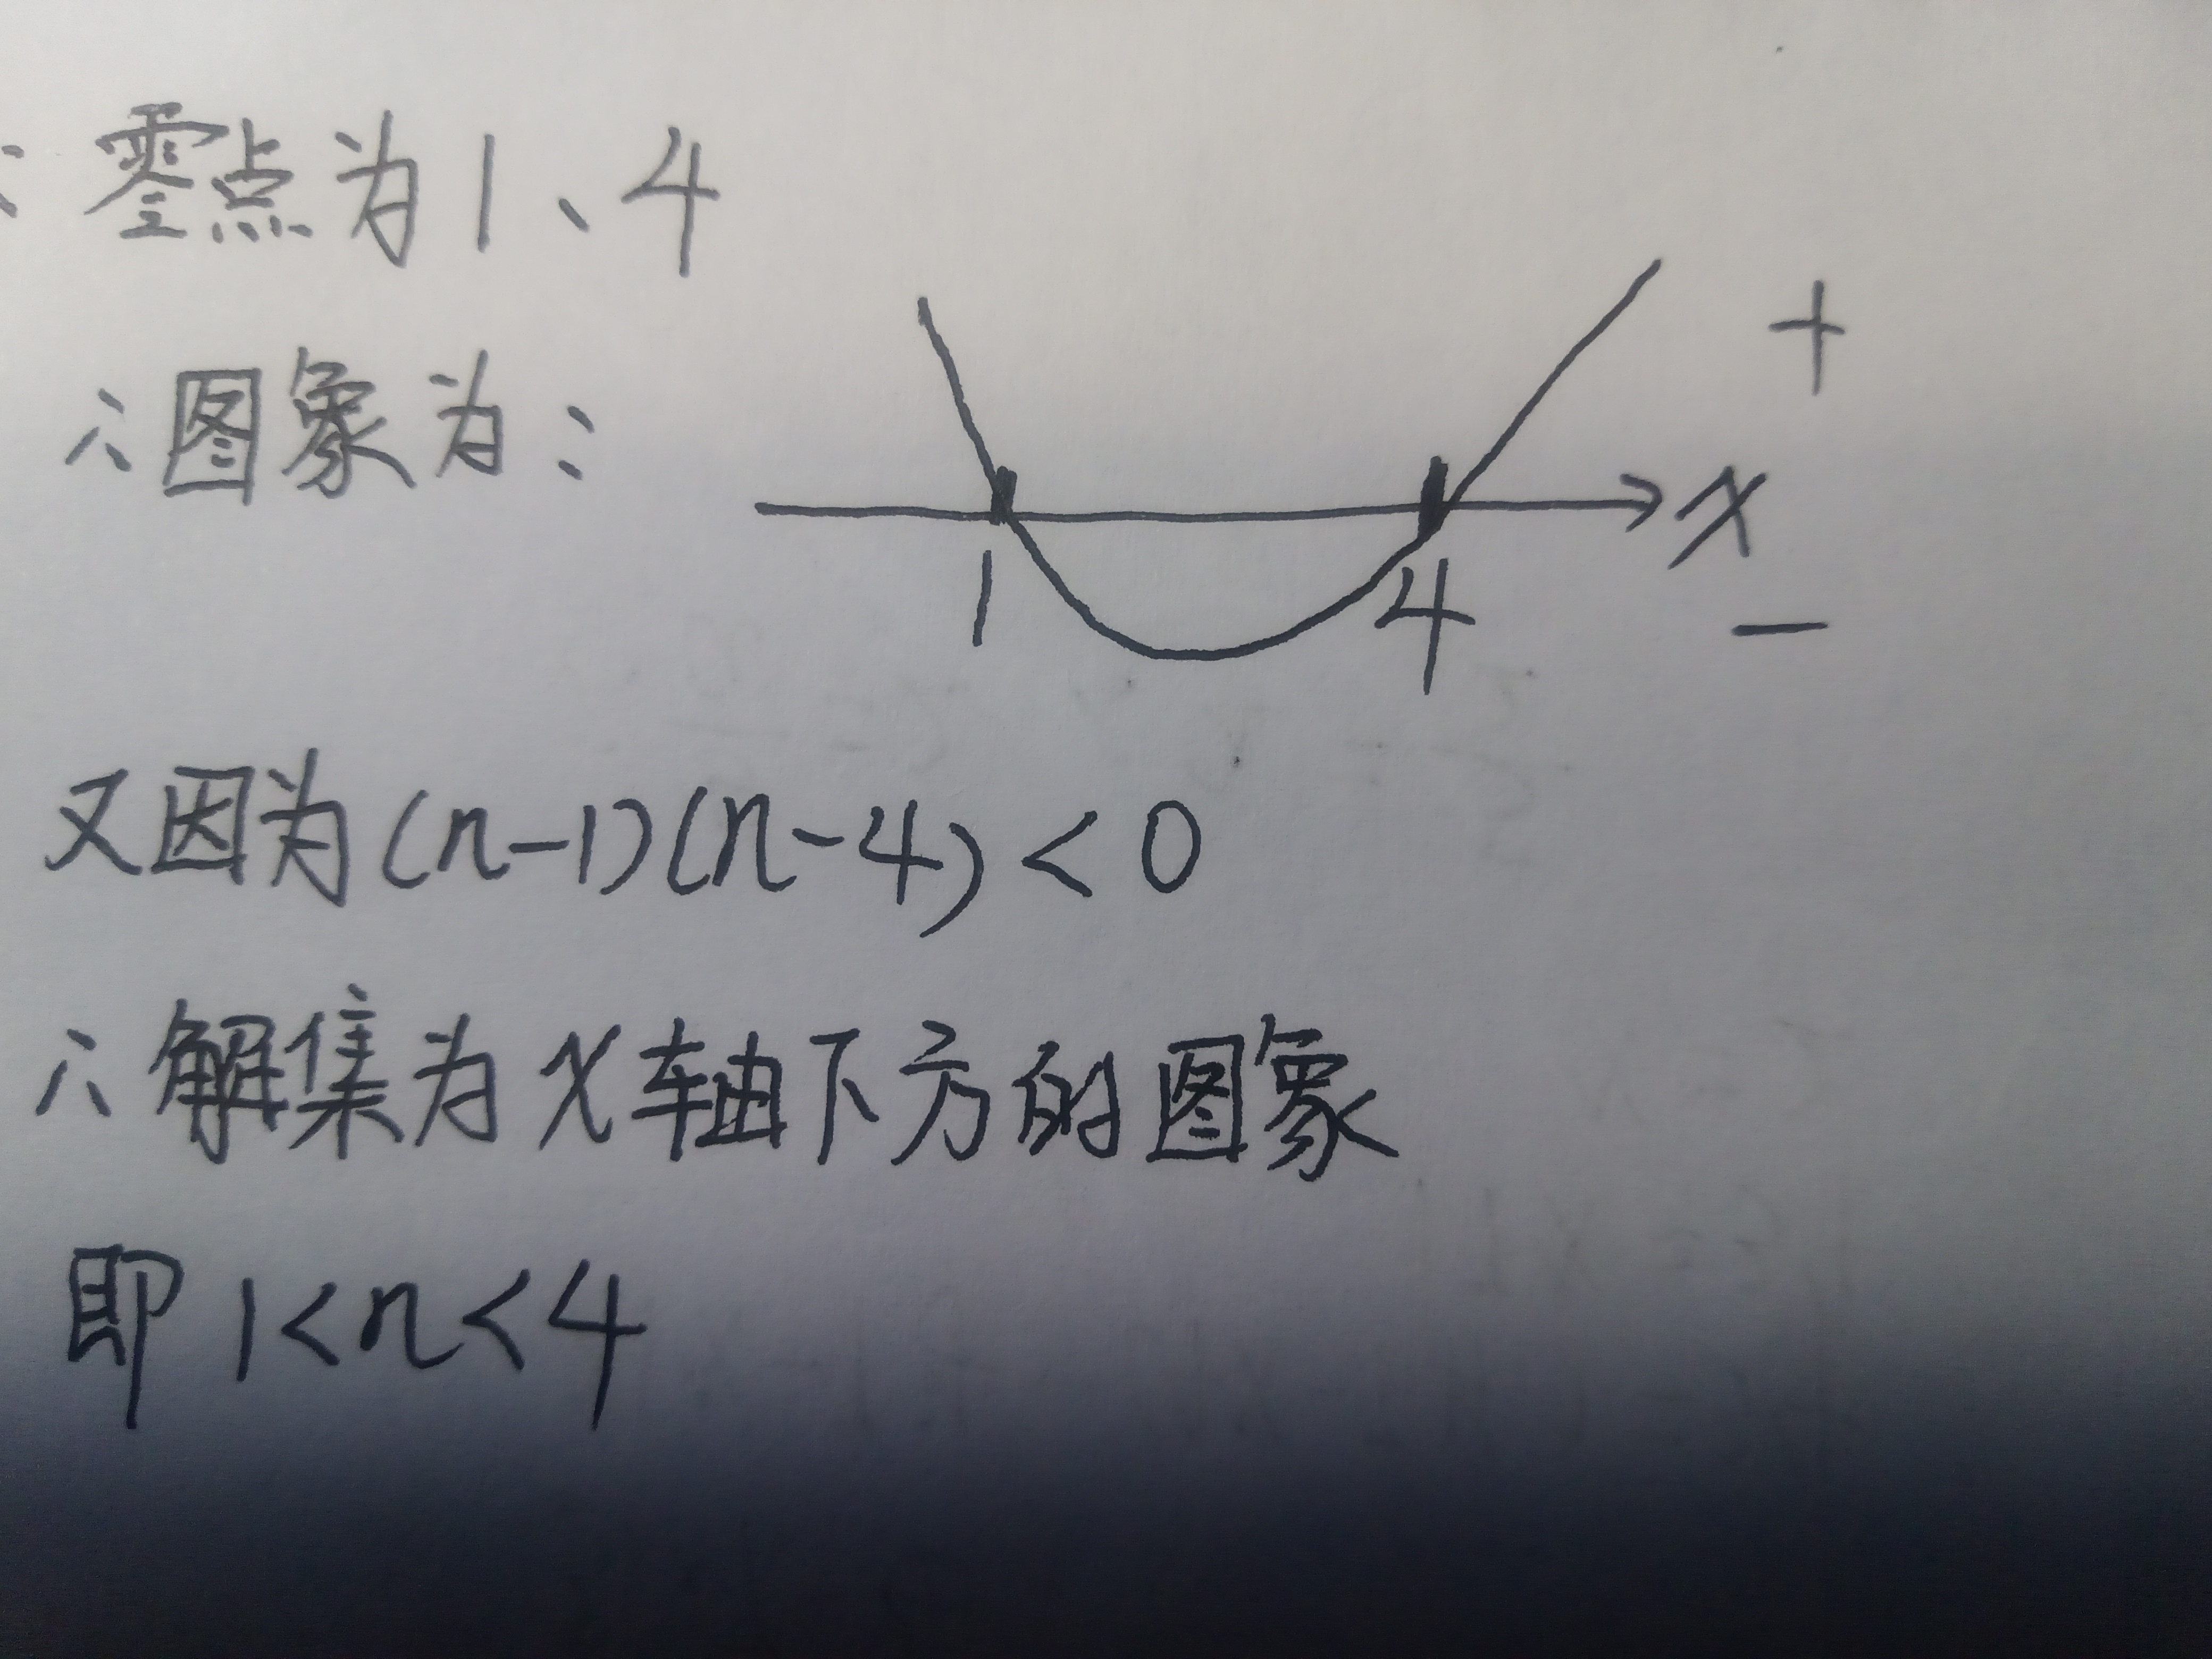 ∵零点为1、4
∴图象为：
+
x
1
4
−
又因为(n-1)(n-4)<0
∴解集为x轴下方的图象
即1<n<4